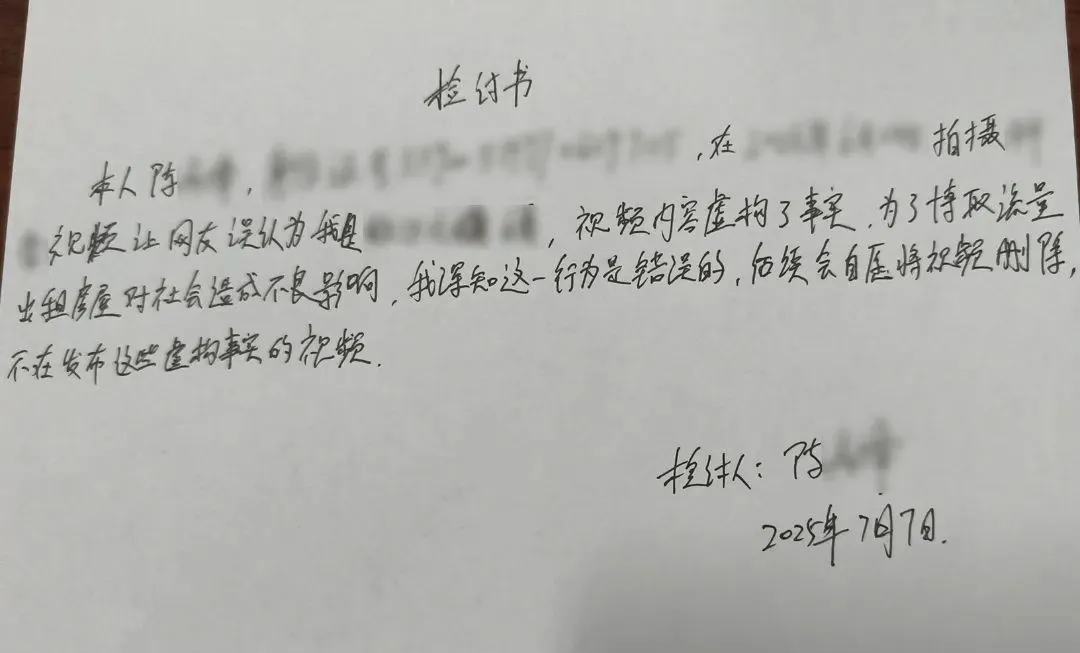 检付书
本人陈 , ,在 拍摄
视频让网友误认为我是 ,视频内容虚构了事实,为了博取流量
出租房屋对社会造成不良影响,我深知这一行为是错误的,后续会自愿将视频删除,
不在发布这些虚构事实的视频.
检付人:陈
2025年7月7日.